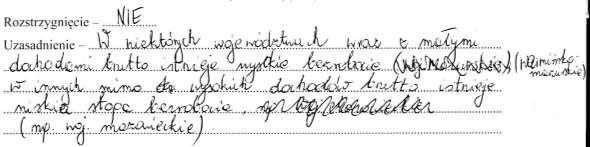 Rozstrzygnięcie – NIE
Uzasadnienie – W niektórych województwach wraz z małymi
dochodami brutto istnieje wysokie bezrobocie (warmińsko-
mazurskie)
w innych mimo wysokich dochodów brutto istnieje
niska stopa bezrobocia,
(np. woj. mazowieckie).